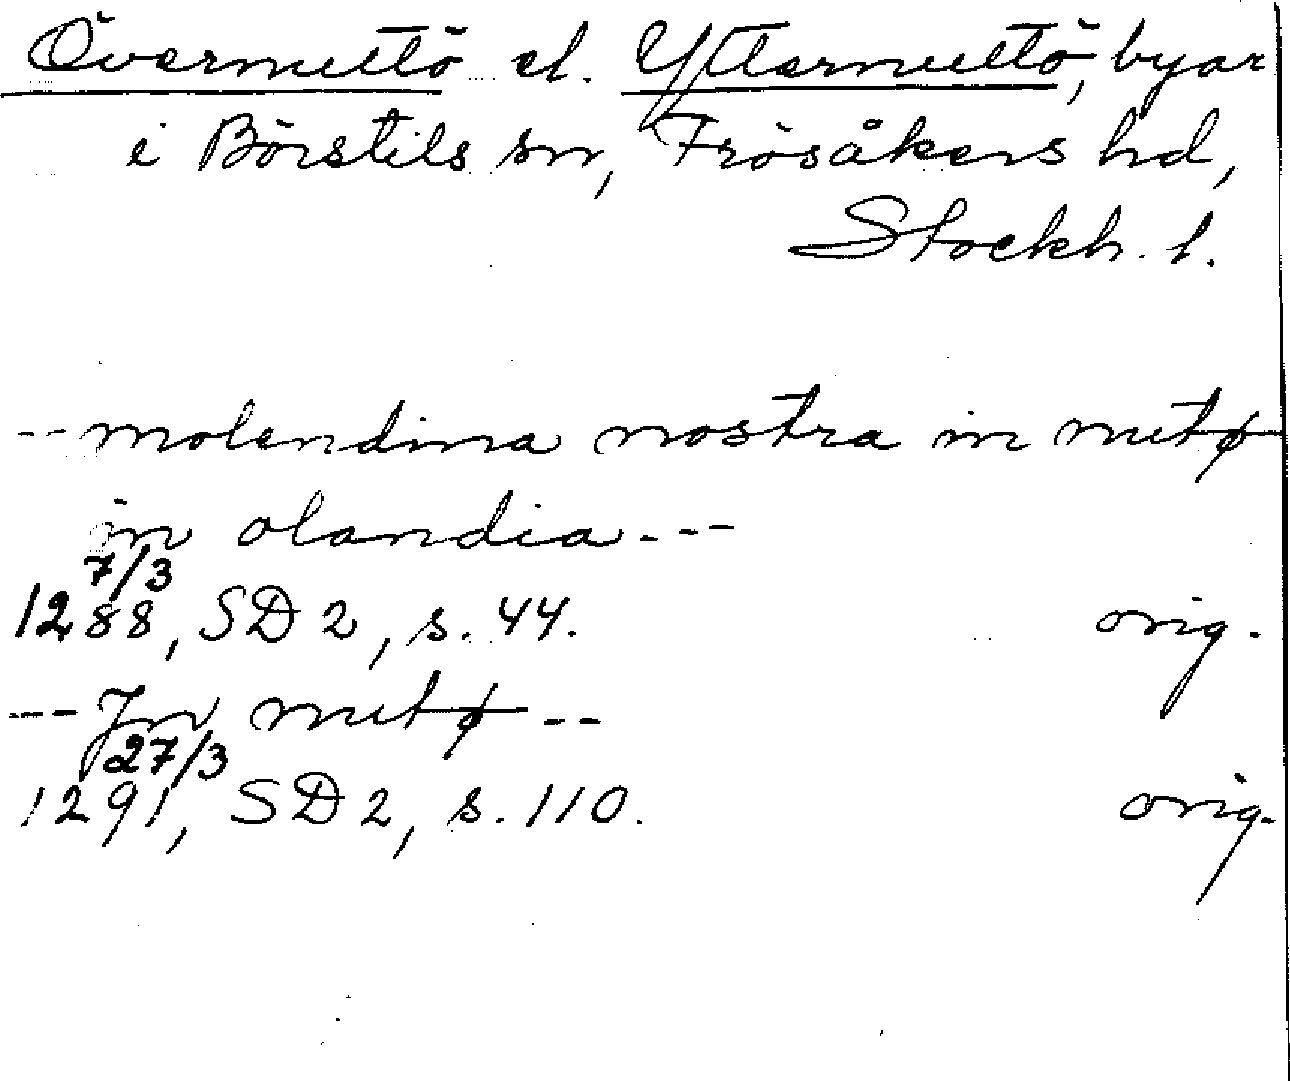 Övermuttö el. Yttermuttö, byar
i Börstils sn, Frösåkers hd,
Stockh. l.
-- molendina nostra in mutø
in olandia ---
7/3
1288, SD 2, s. 44. orig.
--- Jn mutø --
27/3
1291, SD 2, s. 110. orig.